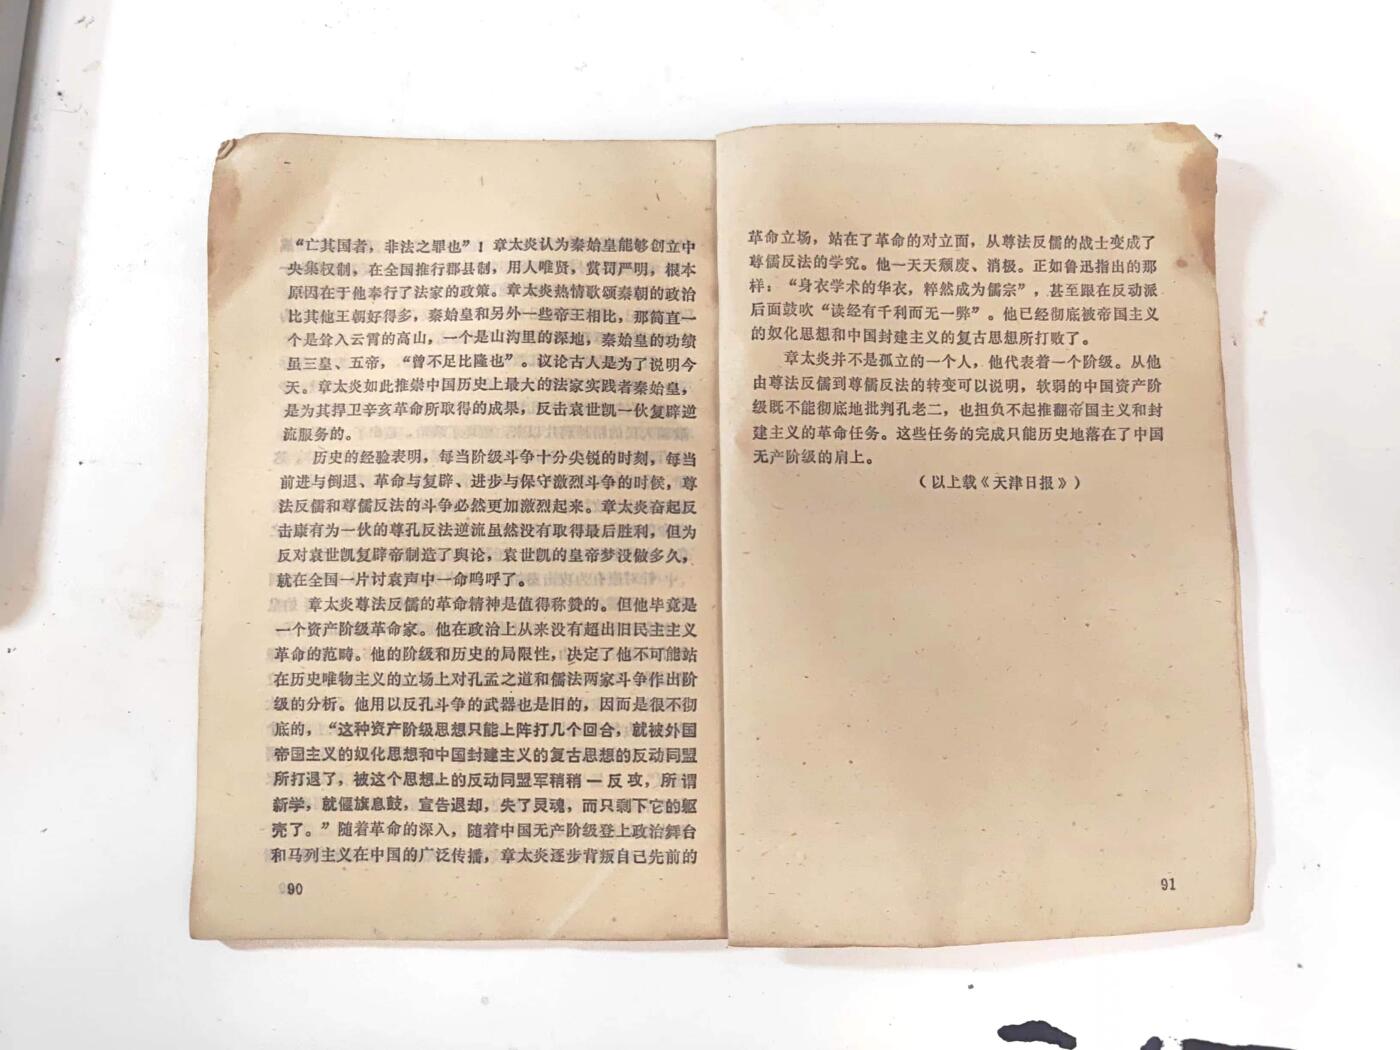 “亡其国者，非法之罪也”！章太炎认为秦始皇能够创立中
央集权制，在全国推行郡县制，用人唯贤，赏罚严明，根本
原因在于他奉行了法家的政策。章太炎热情歌颂秦朝的政治
比其他王朝好得多，秦始皇和另外一些帝王相比，那简直一
个是耸入云霄的高山，一个是山沟里的深地，秦始皇的功绩
虽三皇、五帝，“曾不足比隆也”。议论古人是为了说明今
天。章太炎如此推崇中国历史上最大的法家实践者秦始皇，
是为其捍卫辛亥革命所取得的成果，反击袁世凯一伙复辟逆
流服务的。
历史的经验表明，每当阶级斗争十分尖锐的时刻，每当
前进与倒退、革命与复辟、进步与保守激烈斗争的时候，尊
法反儒和尊儒反法的斗争必然更加激烈起来。章太炎奋起反
击康有为一伙的尊孔反法逆流虽然没有取得最后胜利，但为
反对袁世凯复辟帝制造了舆论，袁世凯的皇帝梦没做多久，
就在全国一片讨袁声中一命呜呼了。
章太炎尊法反儒的革命精神是值得称赞的。但他毕竟是
一个资产阶级革命家。他在政治上从来没有超出旧民主主义
革命的范畴。他的阶级和历史的局限性，决定了他不可能站
在历史唯物主义的立场上对孔孟之道和儒法两家斗争作出阶
级的分析。他用以反孔斗争的武器也是旧的，因而是很不彻
底的，“这种资产阶级思想只能上阵打几个回合，就被外国
帝国主义的奴化思想和中国封建主义的复古思想的反动同盟
所打退了，被这个思想上的反动同盟军稍稍一反攻，所谓
新学，就偃旗息鼓，宣告退却，失了灵魂，而只剩下它的躯
壳了。”随着革命的深入，随着中国无产阶级登上政治舞台
和马列主义在中国的广泛传播，章太炎逐步背叛自己先前的
90
革命立场，站在了革命的对立面，从尊法反儒的战士变成了
尊儒反法的学究。他一天天颓废、消极。正如鲁迅指出的那
样：“身衣学术的华衣，粹然成为儒宗”，甚至跟在反动派
后面鼓吹“读经有千利而无一弊”。他已经彻底被帝国主义
的奴化思想和中国封建主义的复古思想所打败了。
章太炎并不是孤立的一个人，他代表着一个阶级。从他
由尊法反儒到尊儒反法的转变可以说明，软弱的中国资产阶
级既不能彻底地批判孔老二，也担负不起推翻帝国主义和封
建主义的革命任务。这些任务的完成只能历史地落在了中国
无产阶级的肩上。
（以上载《天津日报》）
91